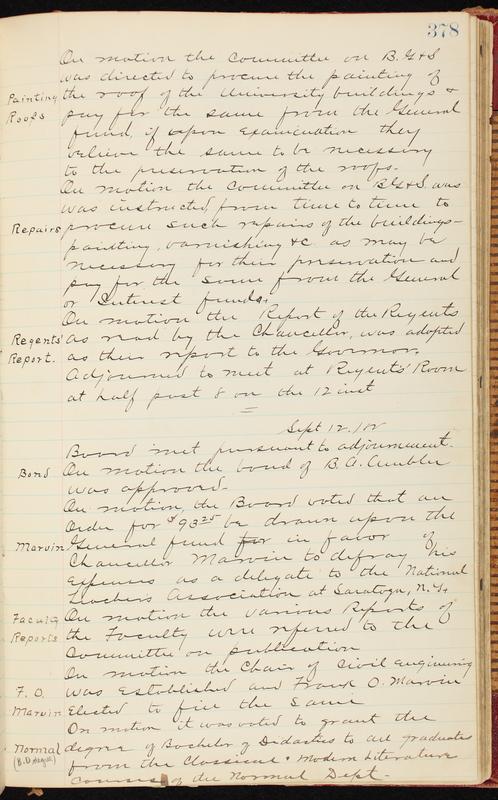 378
On motion the Committee on B. G & S
was directed to procure the painting of
Painting the roof of the University buildings &
Roofs pay for the same from the General
fund, if upon examination they
believe the same to be necessary
to the preservation of the roofs.
On motion the Committee on B G & S. was
was instructed from time to time to
Repairs procure such repairs of the buildings—
painting, varnishing &c as may be
necessary for their preservation and
pay for the same from the General
or Interest funds.
On motion the Report of the Regents
Regents' as read by the Chancellor, was adopted
Report. as their report to the Governor.
Adjourned to meet at Regents' Room
at half past 8 on the 12 inst
Sept 12./82
Board met pursuant to adjournment.
Bond On motion the bond of B. A.
was approved.
On motion, the Board voted that an
Order for $93 25 be drawn upon the
Marvin General fund for in favor of
Chancellor Marvin to defray his
expenses as a delegate to the National
Teachers Association at Saratoga, N. Y.
Faculty On motion the various Reports of
Reports the Faculty were referred to the
Committee on publication
On motion the Chair of Civil Engineering
F. O. was Established and Frank O. Marvin
Marvin Elected to fill the same
On motion it was voted to grant the
Normal degree of Bachelor of Didactics to all graduates
(B. D degree) from the Classical & Modern Literature
Courses of the Normal Dept.